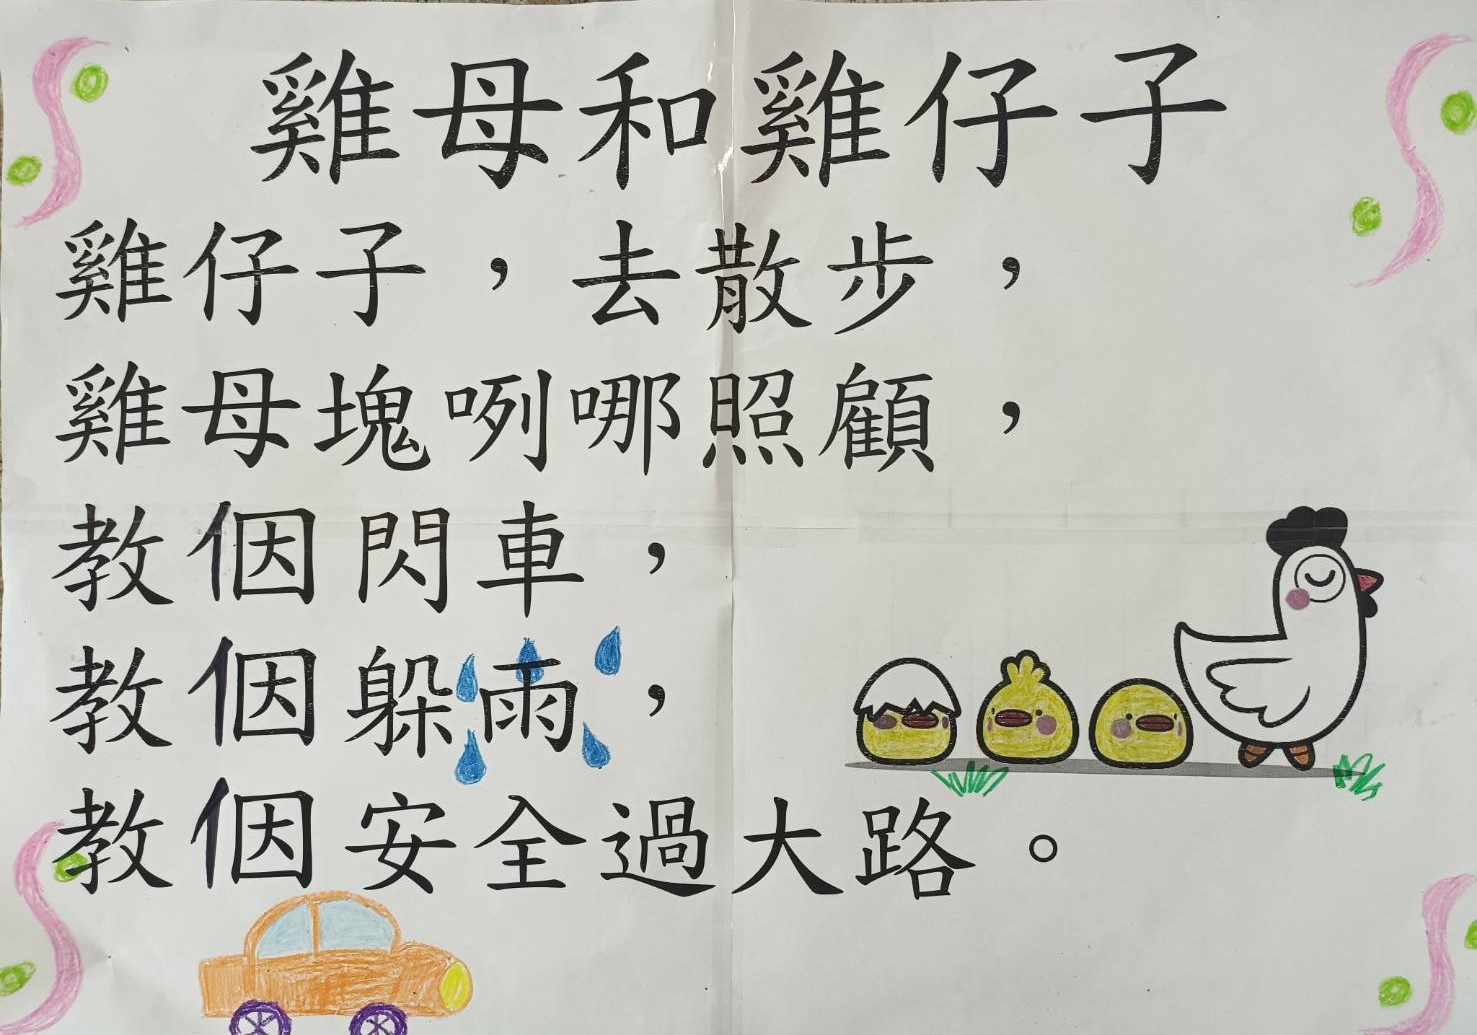 雞母和雞仔子
雞仔子，去散步，
雞母塊咧哪照顧，
教𪜶閃車，
教𪜶躲雨，
教𪜶安全過大路。